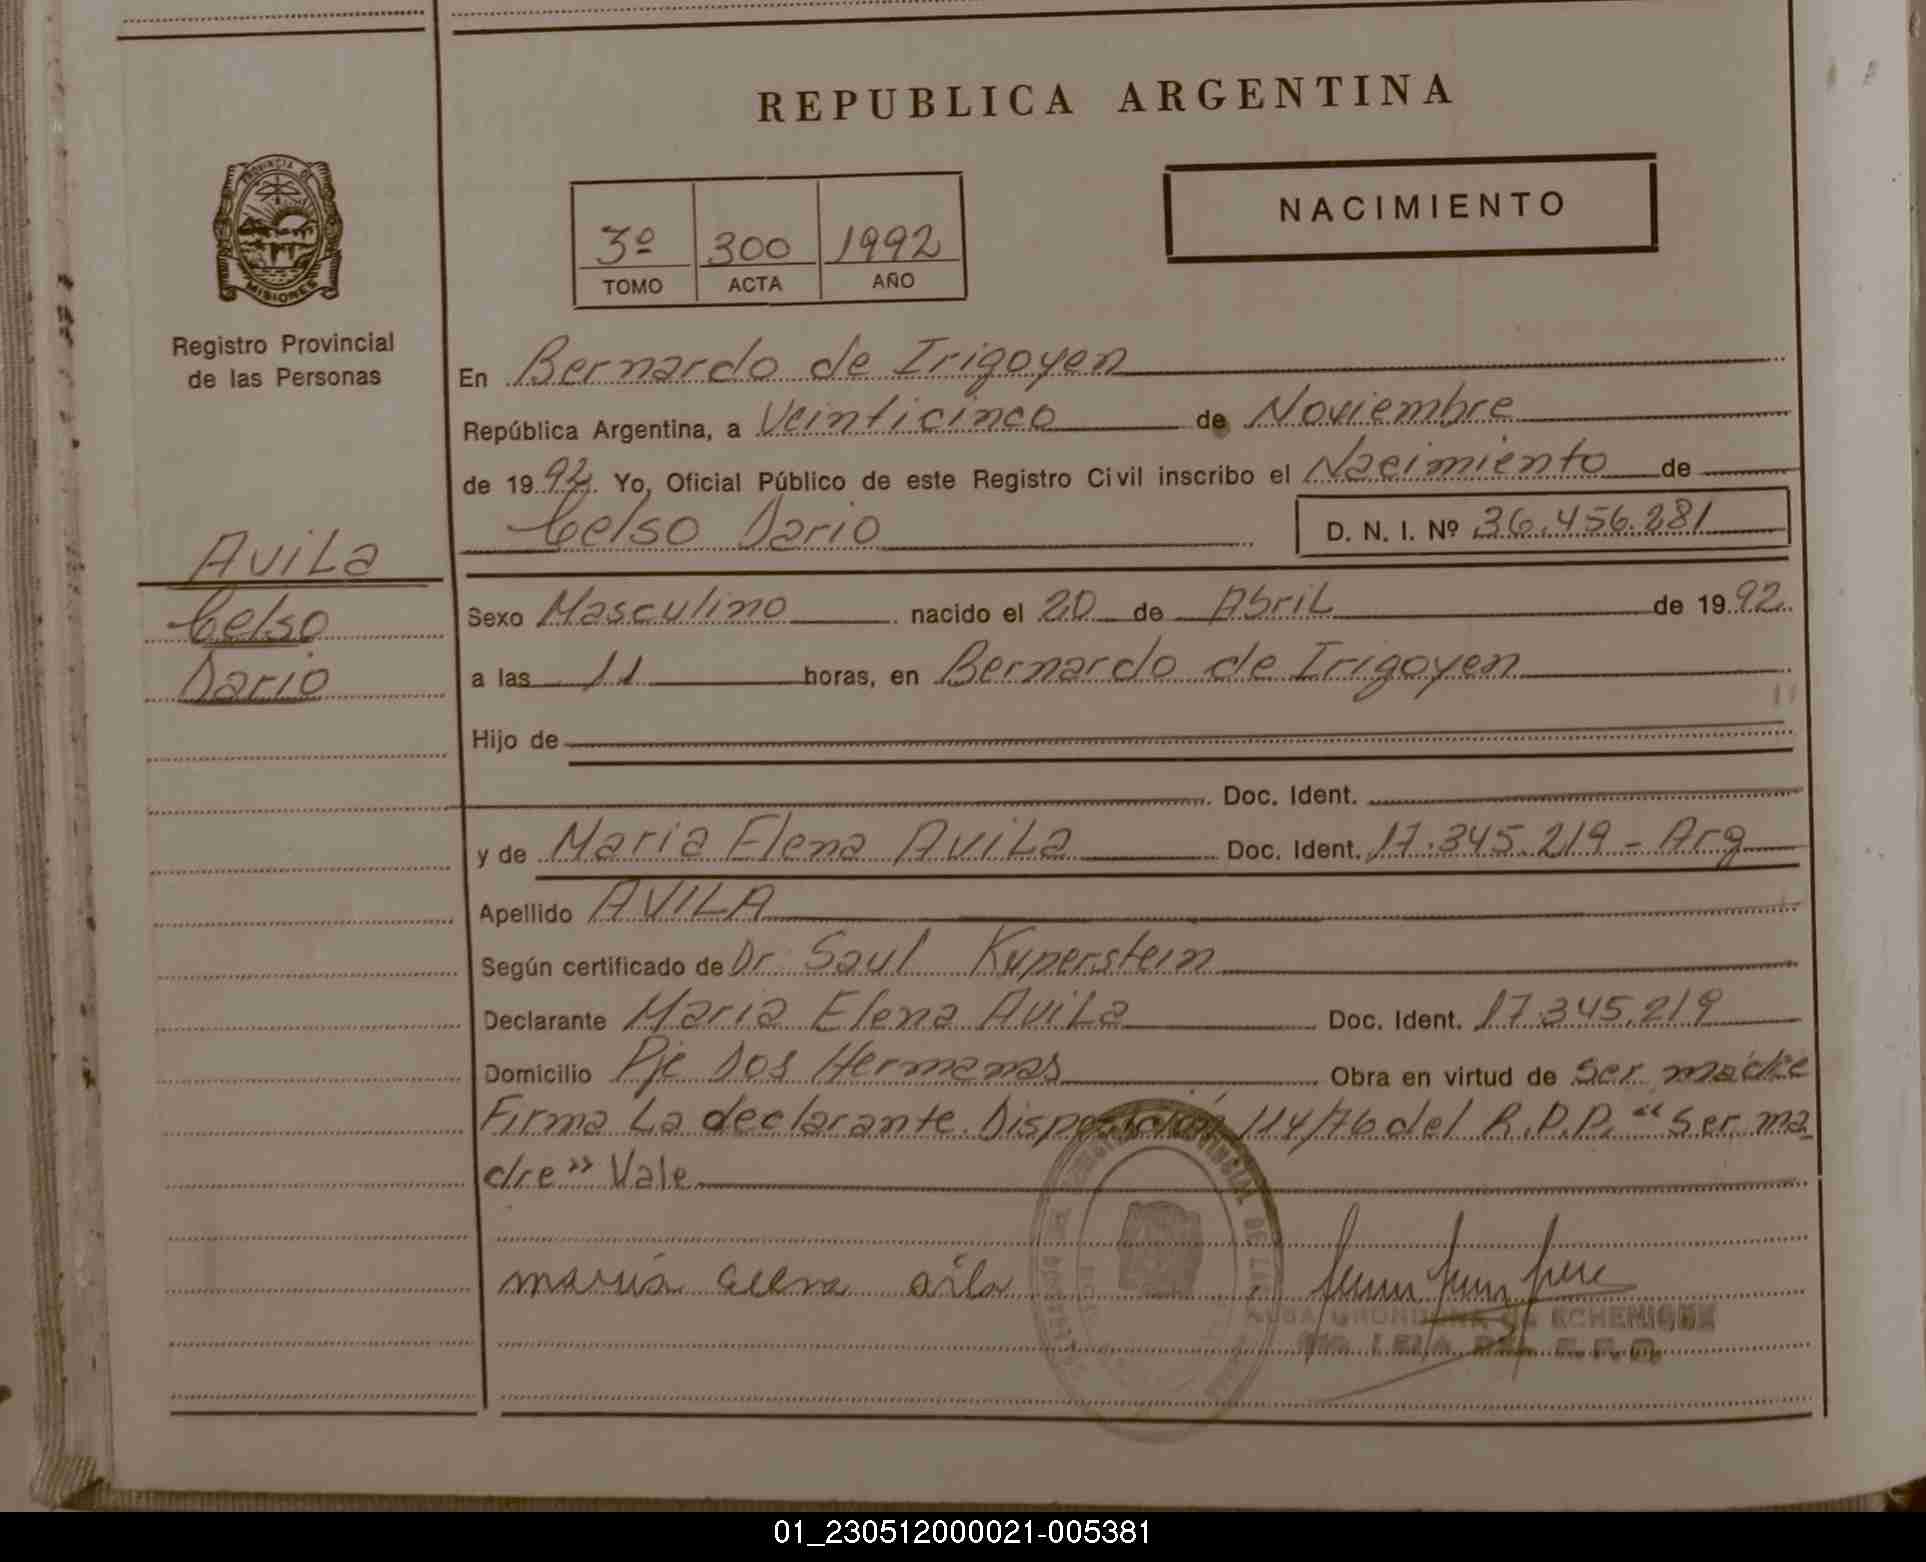 REPUBLICA ARGENTINA
PROVINCIA DE
MISIONES
Registro Provincial
de las Personas
NACIMIENTO
3º 300 1992
TOMO ACTA AÑO
En Bernardo de Irigoyen
República Argentina, a Veinticinco de Noviembre
de 1992. Yo, Oficial Público de este Registro Civil inscribo el Nacimiento de
Celso Dario D. N. I. Nº 36.456.281
Avila
Celso
Dario
Sexo Masculino nacido el 20 de Abril de 1992.
a las 11 horas, en Bernardo de Irigoyen
Hijo de
Doc. Ident.
y de Maria Elena Avila Doc. Ident. 17.345.219 - Arg
Apellido AVILA
Según certificado de Dr Saul Kuperstein
Declarante Maria Elena Avila Doc. Ident. 17.345.219
Domicilio Pje Dos Hermanas Obra en virtud de ser madre
Firma La declarante. Disposición 114/76 del R.P.P. "Ser ma
dre" Vale
PROVINCIAL DE LAS
maria elena
ECHENIQUE
01_230512000021-005381